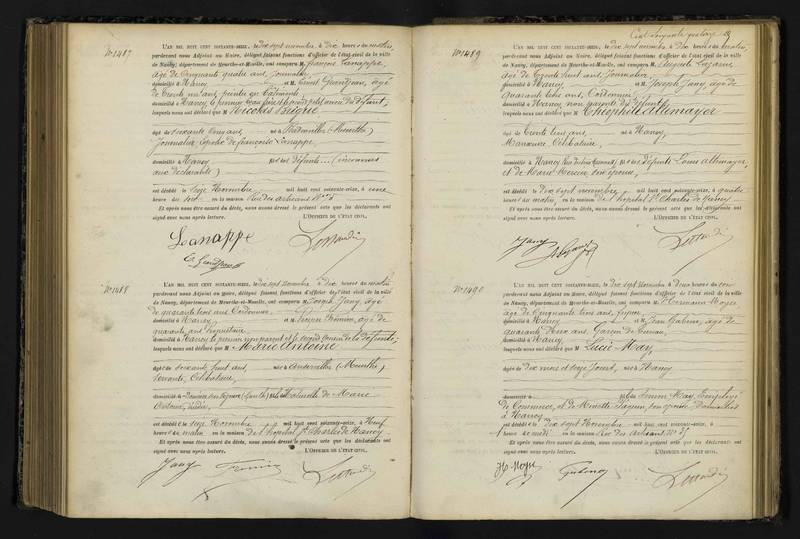 N° 1487
L'AN MIL HUIT CENT SOIXANTE-SEIZE, le dix sept novembre à dix heures du matin,
pardevant nous Adjoint au Maire, délégué faisant fonctions d'officier de l'état civil de la ville
de Nancy, département de Meurthe-et-Moselle, ont comparu M. françois Lanappe,
âgé de Cinquante quatre ans, Journalier,
domicilié à Nancy et M. Ernest Grandjean, âgé
de trente un ans, peintre en bâtiments
domicilié à Nancy, le premier beau frère et le second petit neveu du défunt,
lesquels nous ont déclaré que M Nicolas Brigue
âgé de soixante cinq ans, né à (Meurthe)
Journalier, Epoux de françoise Lanappe.
domicilié à Nancy fils des défunts... (inconnus
aux déclarants)
est décédé le seize Novembre mil huit cent soixante-seize, à onze
heures du soir en sa maison Rue des artisans N° 5
Et après nous être assuré du décès, nous avons dressé le présent acte que les déclarants ont
signé avec nous après lecture. L'OFFICIER DE L'ÉTAT CIVIL,
Lanappe
E. Grandjean
N° 1488
L'AN MIL HUIT CENT SOIXANTE-SEIZE, le dix sept novembre à dix heures du matin
pardevant nous Adjoint au Maire, délégué faisant fonctions d'officier de l'état civil de la ville
de Nancy, département de Meurthe-et-Moselle, ont comparu M. Joseph Jany, âgé
de quarante cinq ans Cordonnier,
domicilié à Nancy, et M. Joseph Firmin, âgé de
quarante ans, propriétaire,
domicilié à Nancy le premier non parent et le second cousin de la défunte,
lesquels nous ont déclaré que M Marie Antoine
âgée de soixante huit ans, née à Ansauviller (Meurthe)
servante, Célibataire,
domiciliée à fille naturelle de Marie
Antoine, décédée,
est décédée le seize Novembre mil huit cent soixante-seize, à Neuf
heures du matin en la maison de l'hopital St Charles de Nancy
Et après nous être assuré du décès, nous avons dressé le présent acte que les déclarants ont
signé avec nous après lecture. L'OFFICIER DE L'ÉTAT CIVIL,
Jany Firmin
Cent soixante quatorze
N° 1489
L'AN MIL HUIT CENT SOIXANTE-SEIZE, le dix sept novembre, à dix heures du matin,
pardevant nous Adjoint au Maire, délégué faisant fonctions d'officier de l'état civil de la ville
de Nancy, département de Meurthe-et-Moselle, ont comparu M. Auguste Lazare,
âgé de trente huit ans, Journalier,
domicilié à Nancy et M. Joseph Jany, âgé de
quarante cinq ans, Cordonnier
domicilié à Nancy non parents du défunt
lesquels nous ont déclaré que M Théophile Allemayer
âgé de trente cinq ans, né à Nancy,
Manoeuvre, Célibataire,
domicilié à Nancy fils des défunts Louis Allemayer,
et de Marie Mercier son épouse,
est décédé le dix sept novembre, mil huit cent soixante-seize, à quatre
heures du matin, en la maison de l'hopital St Charles de Nancy
Et après nous être assuré du décès, nous avons dressé le présent acte que les déclarants ont
signé avec nous après lecture. L'OFFICIER DE L'ÉTAT CIVIL,
Jany
N° 1490
L'AN MIL HUIT CENT SOIXANTE-SEIZE, le dix sept Novembre à deux heures du soir
pardevant nous Adjoint au Maire, délégué faisant fonctions d'officier de l'état civil de la ville
de Nancy, département de Meurthe-et-Moselle, ont comparu M. Hermann Moyse
âgé de Cinquante cinq ans,
domicilié à Nancy et M. Jean Gabriel, âgé de
quarante deux ans, Garçon de bureau,
domicilié à Nancy,
lesquels nous ont déclaré que M Lucie May,
âgée de dix mois et seize Jours, née à Nancy
domiciliée à fille de Simon May, Employé
de Commerce, et de Minette son épouse, domiciliés
à Nancy
est décédée le dix sept Novembre mil huit cent soixante-seize, à
heure de midi en la maison Rue des artisans N° 27
Et après nous être assuré du décès, nous avons dressé le présent acte que les déclarants ont
signé avec nous après lecture. L'OFFICIER DE L'ÉTAT CIVIL,
H. Moyse